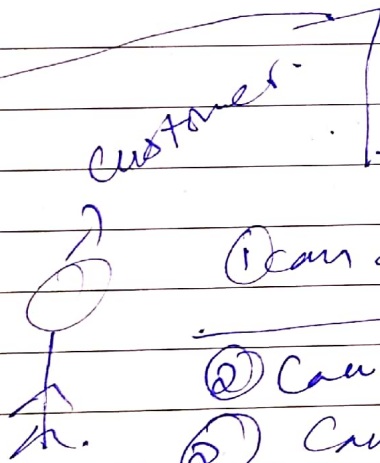 customer.
① can
② Can
② Can